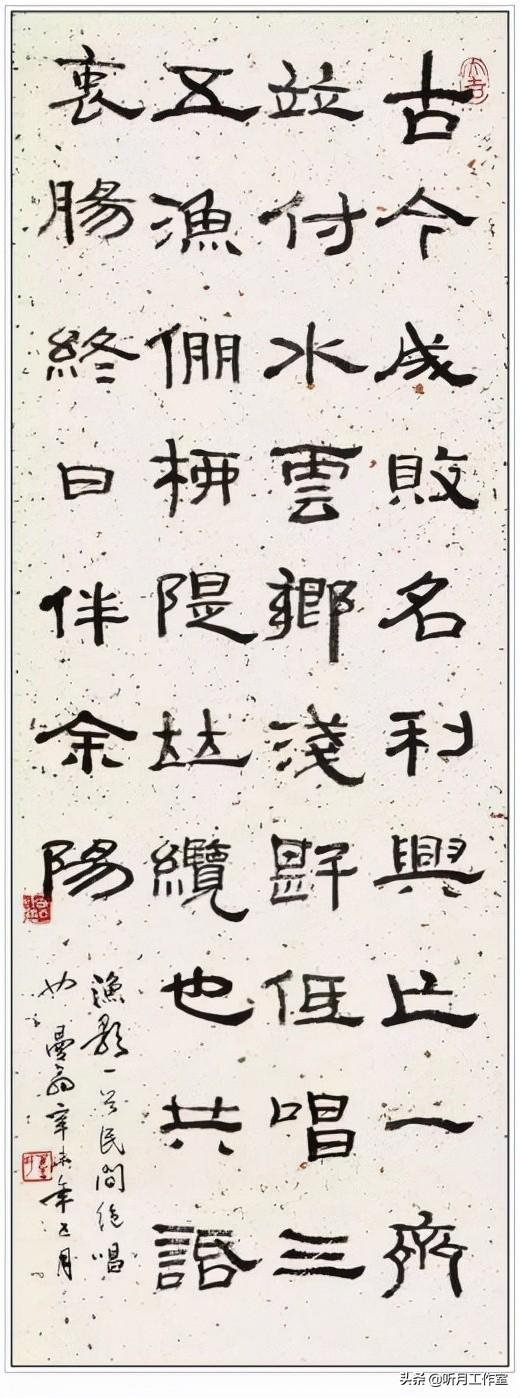 古今成敗名利興亡一齊
竝付水雲鄉淺斟低唱三
五漁倗栖隄竝纜也共話
衷腸終日伴余陽
漁歌一首民間絕唱
也 曼翁辛未年五月
头条 @听月工作室